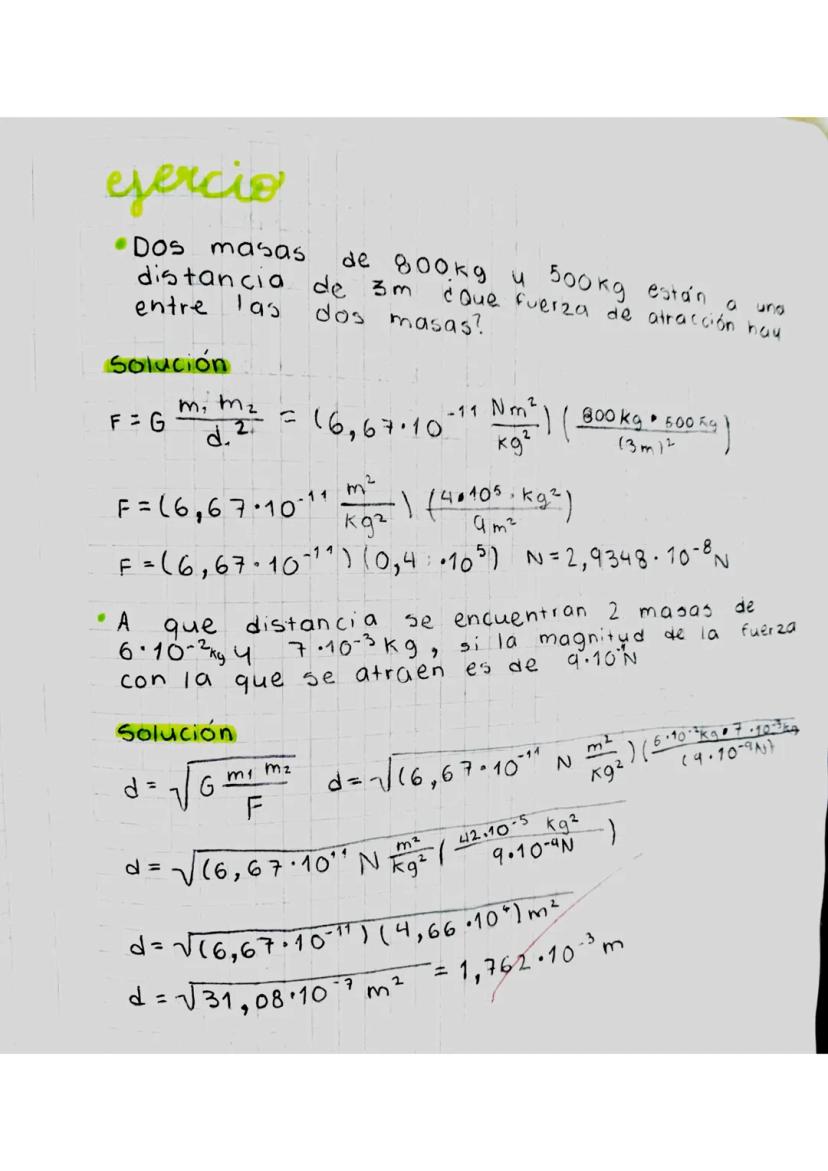 ejercio
• Dos masas de 800kg y 500kg están a una
distancia de 3m ¿Que fuerza de atracción hay
entre las dos masas?
Solución
F = G m₁ m₂ / d.² = (6,67·10⁻¹¹ Nm²/kg²) (800kg • 500kg / (3m)²)
F = (6,67·10⁻¹¹ m²/kg²) (4•10⁵·kg² / 9m²)
F = (6,67·10⁻¹¹) (0,4 ·10⁵) N = 2,9348·10⁻⁸ N
• A que distancia se encuentran 2 masas de
6·10⁻²kg y 7·10⁻³kg, si la magnitud de la fuerza
con la que se atraen es de 9·10 N
Solución
d = √(G m₁ m₂ / F) d = √((6,67·10⁻¹¹ N m²/kg²) (6·10⁻²kg • 7·10⁻³kg / (9·10⁻⁹N)))
d = √((6,67·10¹¹ N m²/kg² (42.10⁻⁵ kg² / 9.10⁻⁹N))
d = √((6,67·10⁻¹¹) (4,66·10⁴) m²)
d = √(31,08·10⁻⁷ m²) = 1,762·10⁻³ m